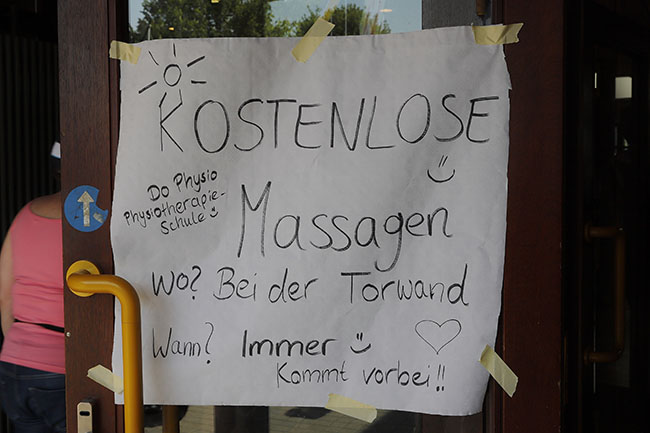 KOSTENLOSE
Do Physio
Physiotherapie-
Schule
Massagen
Wo? Bei der Torwand
Wann? Immer
Kommt vorbei!!